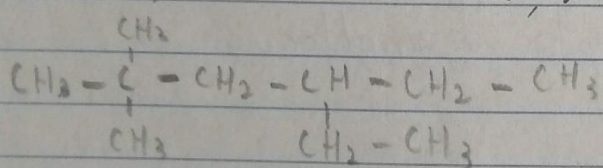 CH₃
CH₃ - C - CH₂ - CH - CH₂ - CH₃
CH₃ CH₂ - CH₃